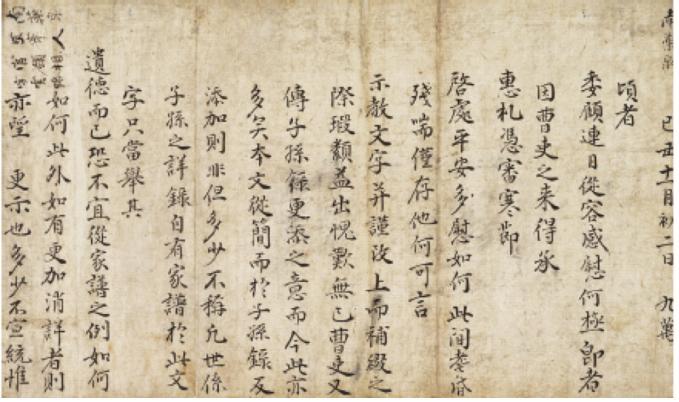 己丑十一月初二日 九萬
頃者
委顧連日從容感慰何極卽者
因曹吏之来得承
惠札憑審寒節
啓處平安多慰如何此间耄昏
殘喘僅存他何可言
示教文字并謹改上而補綴之
際瑕纇益出愧歎無已曹吏又
傳子孫錄更添之意而今此亦
多矣本文從簡而於子孫錄反
添加則非但多少不稱凡世係
子孫之詳錄自有家譜於此文
字只當舉其
遺德而已恐不宜從家譜之例如何
如何此外如有更加消詳者則
亦望 更示也多少不宣統惟